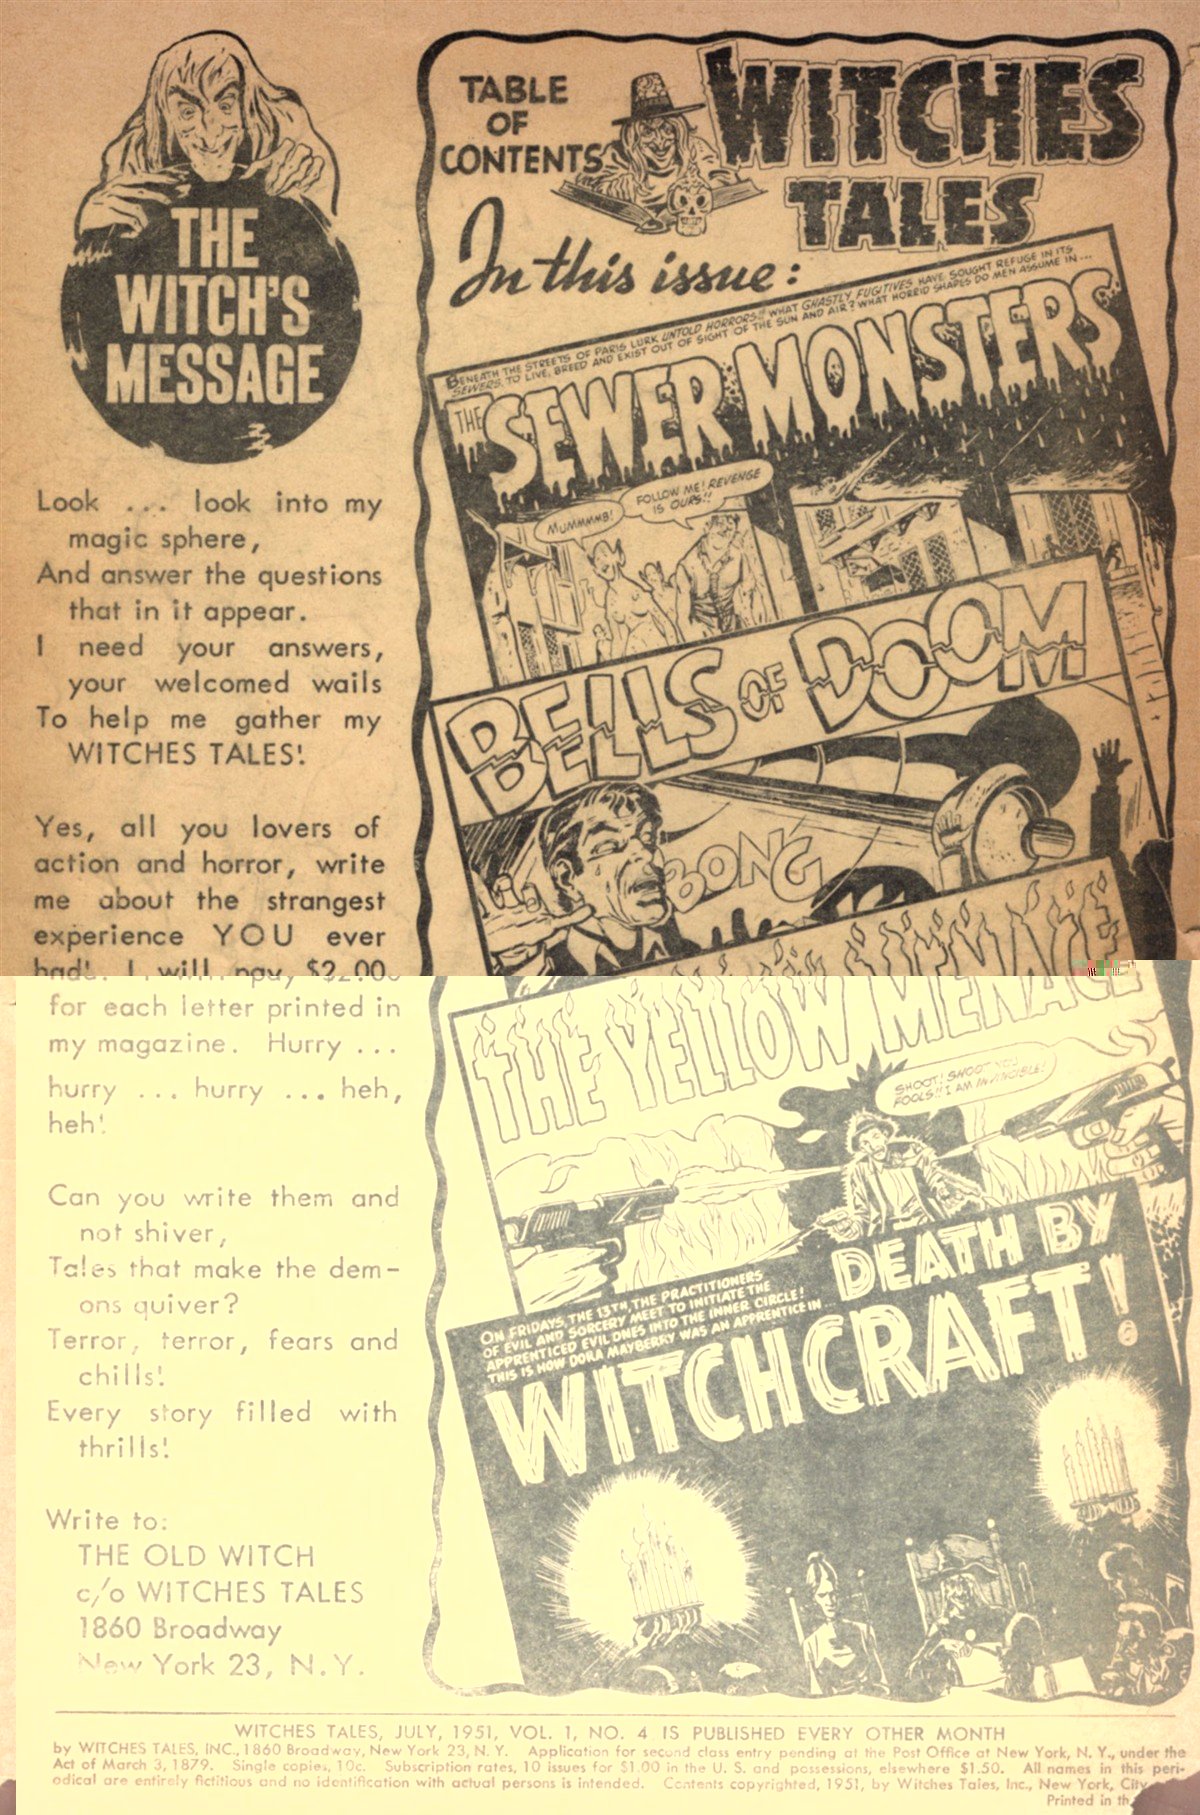 THE
WITCH'S
MESSAGE
Look ... look into my
magic sphere,
And answer the questions
that in it appear.
I need your answers,
your welcomed wails
To help me gather my
WITCHES TALES!
Yes, all you lovers of
action and horror, write
me about the strangest
experience YOU ever
had! I will pay $2.00
for each letter printed in
my magazine. Hurry ...
hurry ... hurry ... heh,
heh!
Can you write them and
not shiver,
Tales that make the dem-
ons quiver?
Terror, terror, fears and
chills!
Every story filled with
thrills!
Write to:
THE OLD WITCH
c/o WITCHES TALES
1860 Broadway
New York 23, N.Y.
TABLE
OF
CONTENTS
WITCHES
TALES
In this issue:
BENEATH THE STREETS OF PARIS LURK UNTOLD HORRORS!! WHAT GHASTLY FUGITIVES HAVE SOUGHT REFUGE IN ITS
SEWERS, TO LIVE, BREED AND EXIST OUT OF SIGHT OF THE SUN AND AIR? WHAT HORRID SHAPES DO MEN ASSUME IN...
THE SEWER MONSTERS
MUMMMMB!
FOLLOW ME! REVENGE
IS OURS!!
BELLS OF DOOM
BONG
THE YELLOW MENACE
SHOOT! SHOOT YOU
FOOLS!! I AM INVINCIBLE!
ON FRIDAYS, THE 13TH, THE PRACTITIONERS
OF EVIL AND SORCERY MEET TO INITIATE THE
APPRENTICED EVIL ONES INTO THE INNER CIRCLE!
THIS IS HOW DORA MAYBERRY WAS AN APPRENTICE IN...
DEATH BY
WITCHCRAFT!
WITCHES TALES, JULY, 1951, VOL. 1, NO. 4 IS PUBLISHED EVERY OTHER MONTH
by WITCHES TALES, INC., 1860 Broadway, New York 23, N. Y. Application for second class entry pending at the Post Office at New York, N. Y., under the
Act of March 3, 1879. Single copies, 10c. Subscription rates, 10 issues for $1.00 in the U. S. and possessions, elsewhere $1.50. All names in this peri-
odical are entirely fictitious and no identification with actual persons is intended. Contents copyrighted, 1951, by Witches Tales, Inc., New York, City
Printed in th